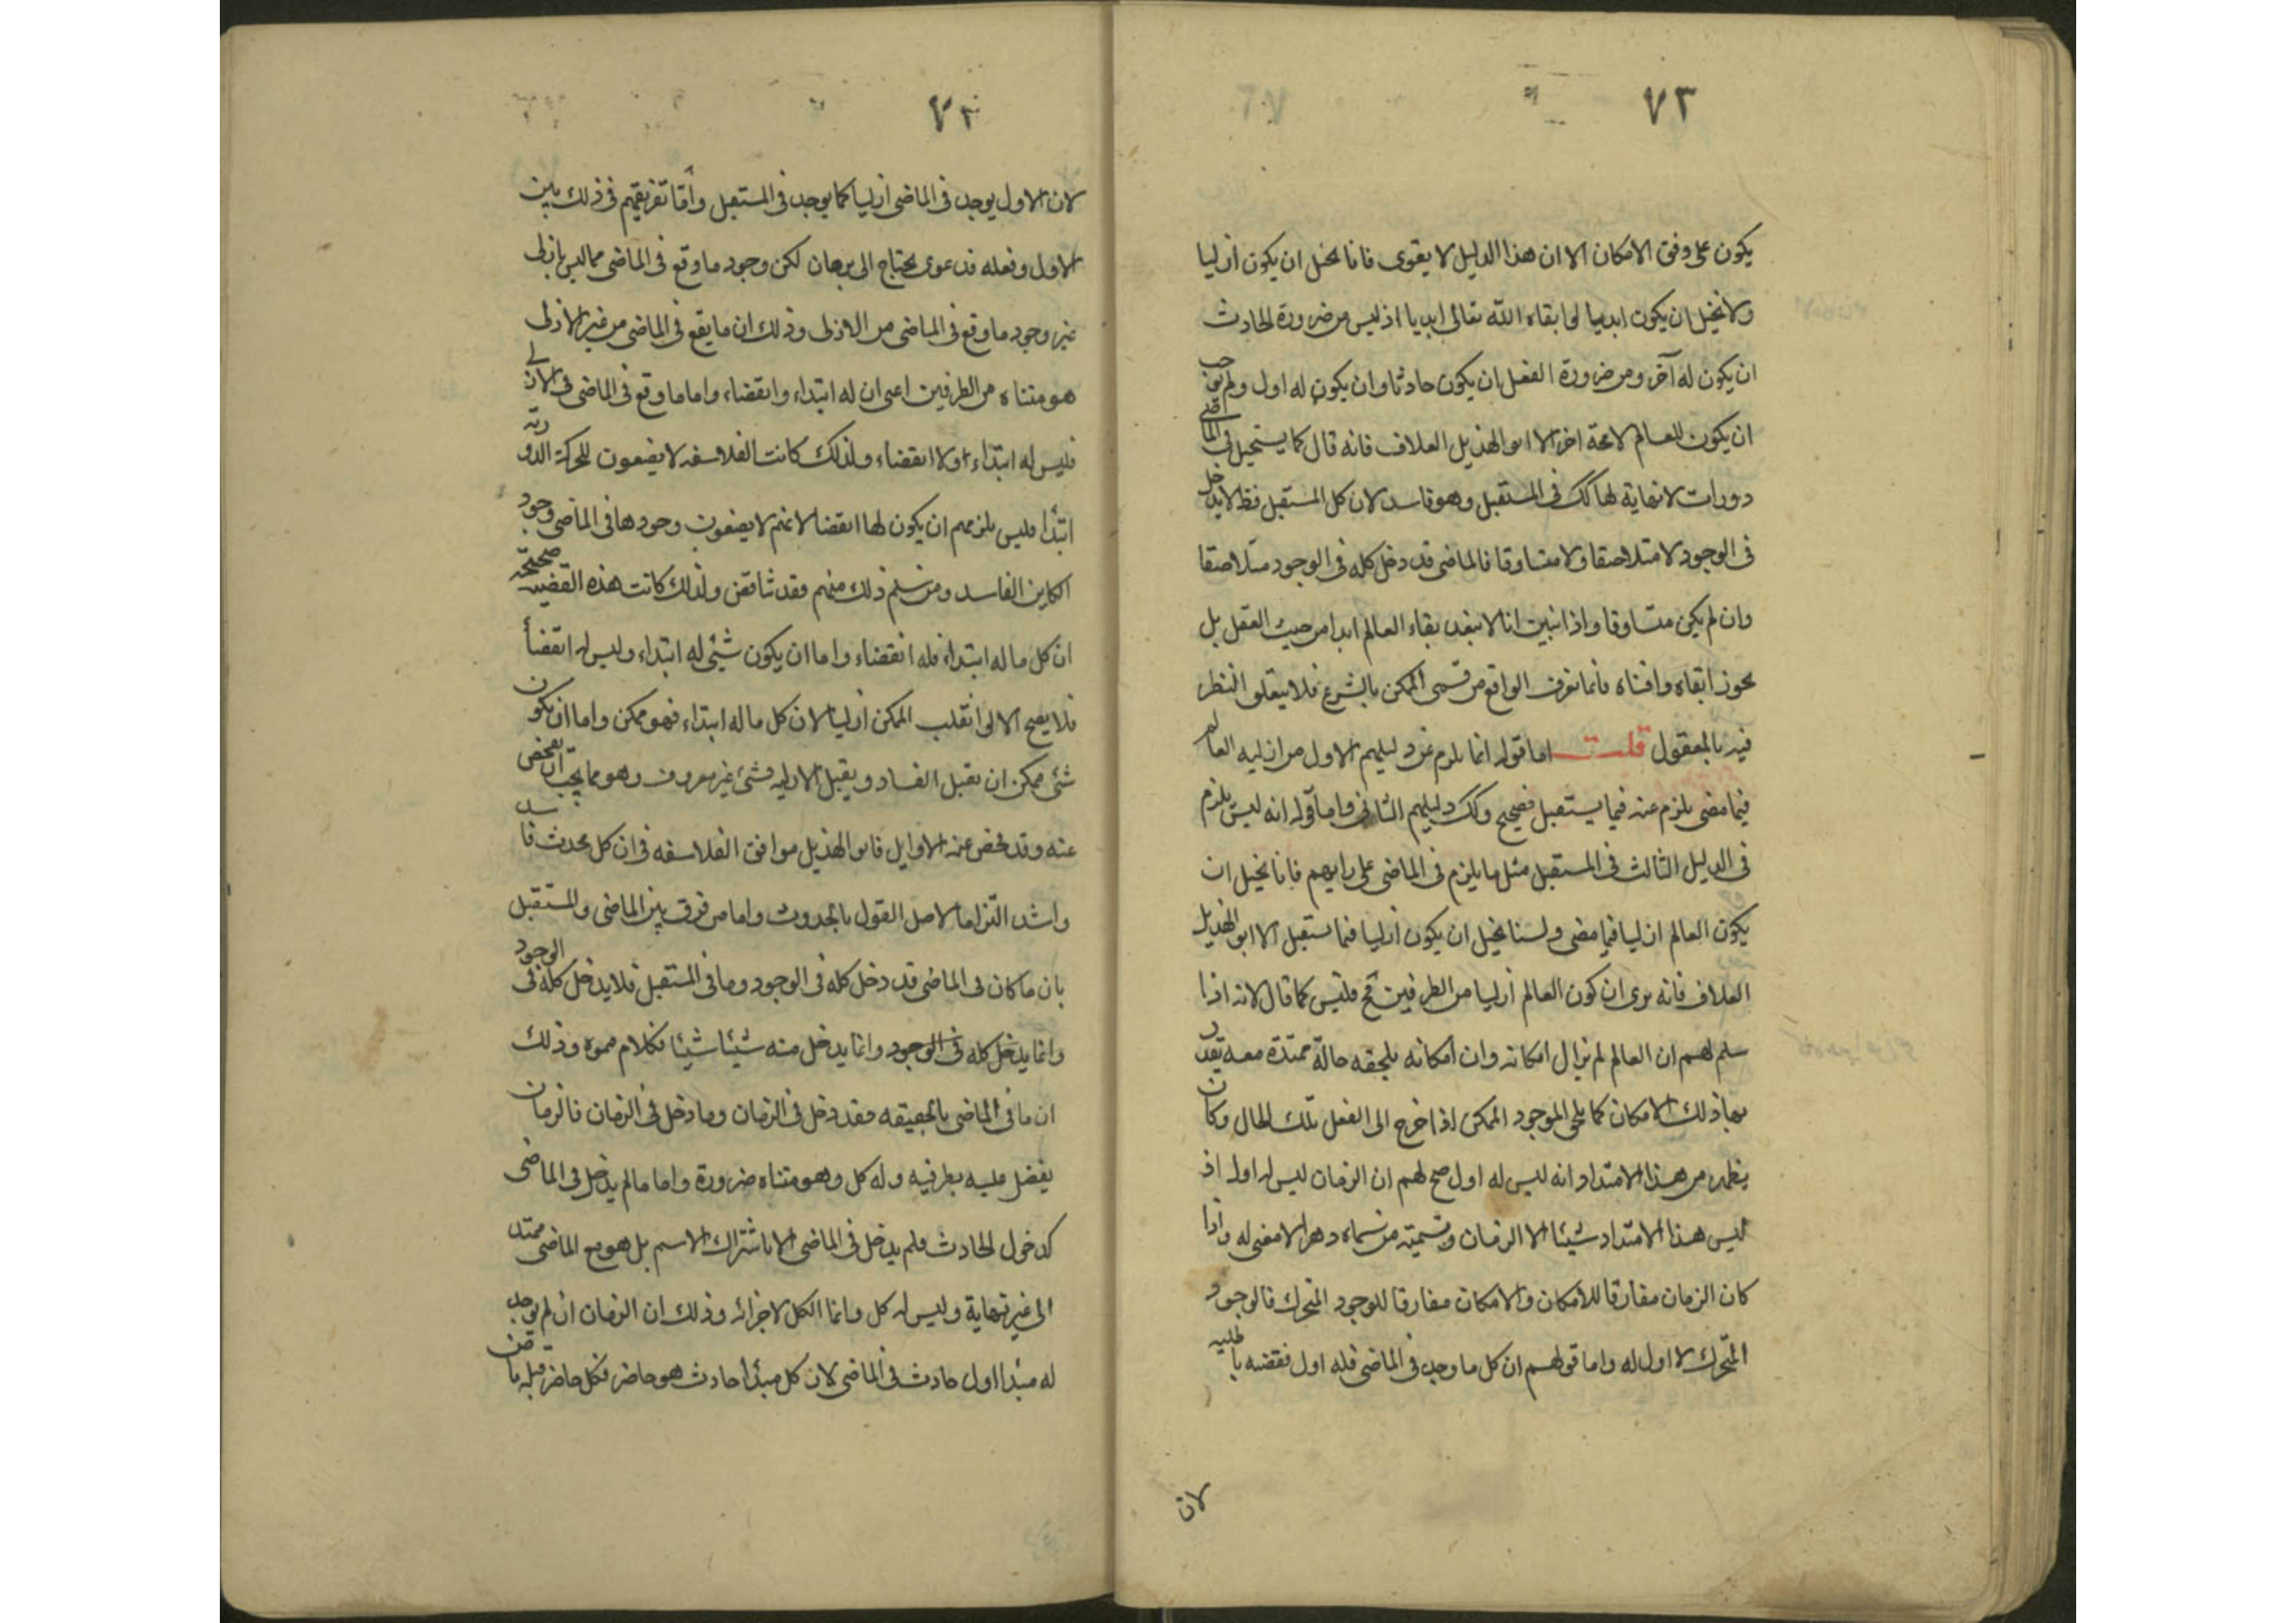 ٧٣
يكون على وفق الامكان الا ان هذا الدليل لا يقوى فانا نحيل ان يكون ازليا
ولا نحيل ان يكون ابديا لو ابقاه الله تعالى ابديا اذ ليس من ضرورة الحادث
ان يكون له آخر ومن ضرورة الفعل ان يكون حادثا وان يكون له اول ولم يوجب
ان يكون للعالم لا محة اخر الا ابو الهذيل العلاف فانه قال كما يستحيل في الماضي
دورات لا نهاية لها كك في المستقبل وهو فاسد لان كل المستقبل قط لا يدخل
في الوجود لا متلاصقا ولا متساوقا فالماضى قد دخل كله في الوجود متلاصقا
وان لم يكن متساوقا واذا تبين انا لا نبعد بقاء العالم ابدا من حيث العقل بل
نجوز ابقاه وافناه فانما نعرف الواقع من قسمى الممكن بالشرع فلا يتعلق النظر
فيه بالمعقول قلت اما قوله انما يلزم عن دليلهم الاول من ازليه العالم
فيما مضى يلزم عنه فيما يستقبل فصحيح وكك دليلهم الثانى واما قوله انه ليس يلزم
في الدليل الثالث في المستقبل مثل ما يلزم في الماضى على رايهم فانا نحيل ان
يكون العالم ازليا فيما مضى ولسنا نحيل ان يكون ازليا فيما يستقبل الا ابو الهذيل
العلاف فانه يرى ان كون العالم ازليا من الطرفين مح فليس كما قال لانه اذا
سلم لهم ان العالم لم يزال امكانه وان امكانه يلحقه حالة ممتدة معه يقدر
بها ذلك الامكان كما يلحق الموجود الممكن اذا خرج الى الفعل تلك الحال وكان
يظهر من هذا الامتداد انه ليس له اول صح لهم ان الزمان ليس له اول اذ
ليس هذا الامتداد شيئا الا الزمان وتسميته من سماه دهرا لا معنى له واذا
كان الزمان مقارقا للامكان والامكان مقارقا للوجود المتحرك فالوجود
المتحرك لا اول له واما قولهم ان كل ما وجد في الماضى فله اول فقضيه باطلة
لان
٧٣
لان الاول يوجد في الماضى ازليا كما يوجد في المستقبل واما تفريقهم في ذلك بين
الاول وفعله فدعوى يحتاج الى برهان لكن وجود ما وقع في الماضى مما ليس بازلى
غير وجود ما وقع في الماضى من الازلى وذلك ان ما يقع في الماضى من غير الازلى
هو متناه من الطرفين اعنى ان له ابتداء وانقضاء واما ما وقع في الماضى من الازلى
فليس له ابتداء ولا انقضاء ولذلك كانت الفلاسفه لا يضعون للحركة الدورية
ابتدأ فليس يلزمهم ان يكون لها انقضا لانهم لا يضعون وجودها في الماضى وجود
الكاين الفاسد ومن سلم ذلك منهم فقد تناقض ولذلك كانت هذه القضيه صحيحة
ان كل ماله ابتداء فله انقضاء واما ان يكون شئ له ابتداء وليس له انقضأ
فلا يصح الا لو انقلب الممكن ازليا لان كل ماله ابتداء فهو ممكن واما ان يكون
شئ ممكن ان يقبل الفساد ويقبل الازليه فشئ غير معروف وهو مما يجب ان يفحص
عنه وقد فحص عنه الاوايل فابو الهذيل موافق الفلاسفه في ان كل محدث فاسد
واشد التزاما لاصل القول بالحدوث واما من فرق بين الماضى والمستقبل
بان ما كان في الماضى قد دخل كله في الوجود وما في المستقبل فلا يدخل كله في الوجود
وانما يدخل كله في الوجود وانما يدخل منه شيئا شيئا فكلام مموه وذلك
ان ما في الماضى بالحقيقه فقد دخل في الزمان وما دخل في الزمان فالزمان
يفضل عليه بطرفيه وله كل وهو متناه ضرورة واما ما لم يدخل في الماضى
كدخول الحادث فلم يدخل في الماضى الا باشتراك الاسم بل هو مع الماضى ممتد
الى غير نهاية وليس له كل وانما الكل لاجزائه وذلك ان الزمان ان لم يوجد
له مبدا اول حادث في الماضى لان كل مبدأ حادث هو حاضر فكل حاضر قبله ماض